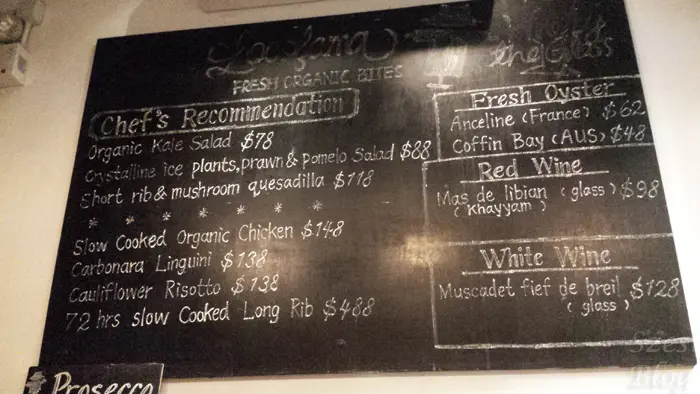 Locofama
FRESH ORGANIC BITES
Chef's Recommendation
Organic Kale Salad $78
Crystalline ice plants, prawn & pomelo Salad $88
Short rib & mushroom quesadilla $118
* * * * * * * *
Slow Cooked Organic Chicken $148
Carbonara Linguini $138
Cauliflower Risotto $138
72 hrs slow Cooked Long Rib $488
the Glass
Fresh Oyster
Anceline (France) $62
Coffin Bay (AUS) $48
Red Wine
Mas de libian (glass) $98
(Khayyam)
White Wine
Muscadet fief de breil $128
(glass)
Prosecco
Blog